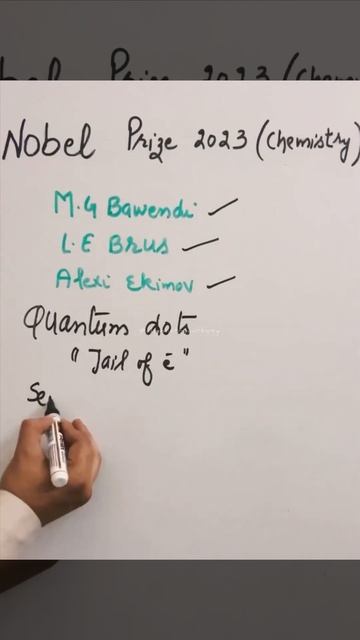 Nobel Prize 2023 (Chemistry)
M.G Bawendi
L.E Brus
Alexi Ekimov
Quantum dots
"Jail of ē"
Se